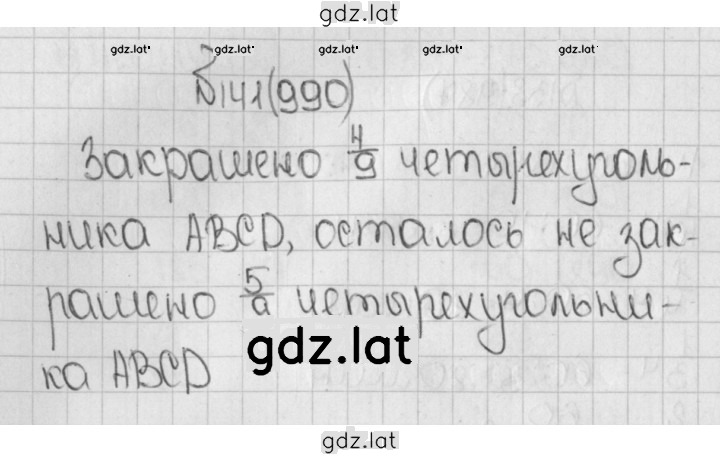 gdz.lat
gdz.lat gdz.lat gdz.lat gdz.lat gdz.lat
№141(990)
Закрашено 4/9 четырехуголь-
ника ABCD, осталось не зак-
рашено 5/9 четырехугольни-
ка ABCD
gdz.lat
gdz.lat